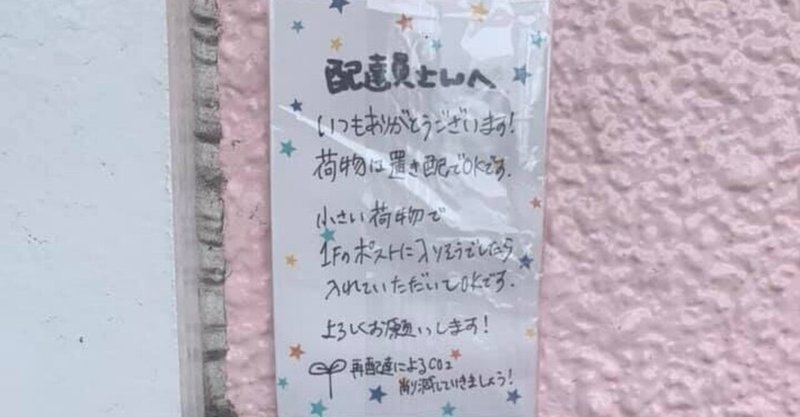 配達員さんへ
いつもありがとうございます!
荷物は置き配でOKです.
小さい荷物で
1Fのポストに入りそうでしたら
入れていただいてOKです.
よろしくお願いします!
再配達によるCO2
削減していきましょう!